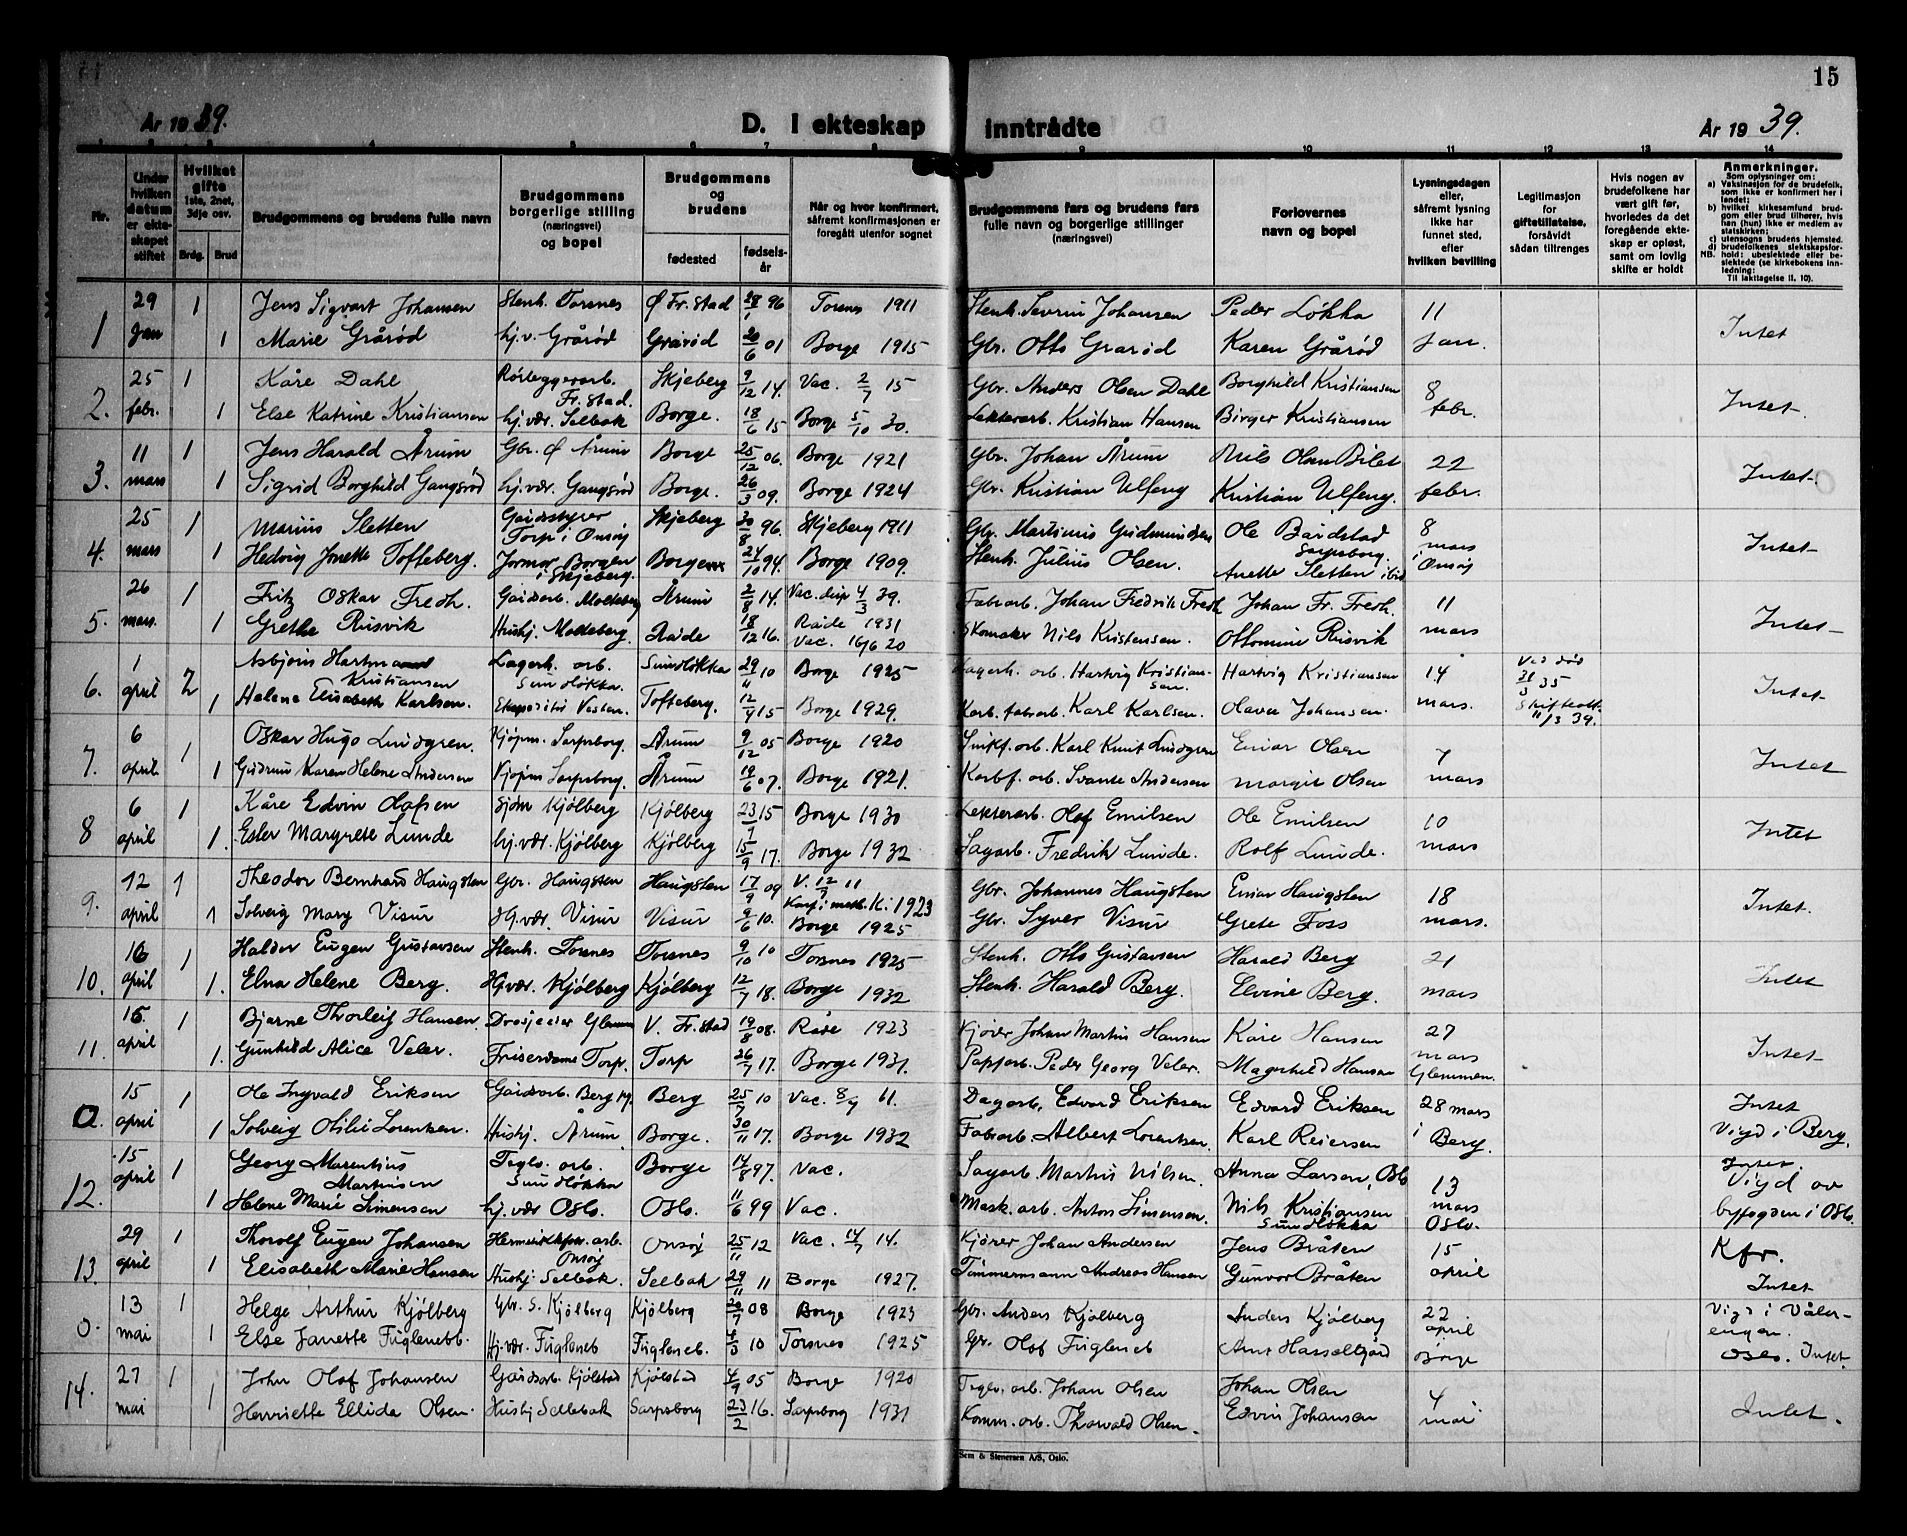 15
År 1939.
D. I ekteskap inntrådte
År 1939.
1 2 3 4 5 6 7 8 9 10 11 12 13 14
Nr.
Under hvilken datum er ekteskapet stiftet
Hvilket gifte 1ste, 2net, 3dje osv.
Brdg. Brud
Brudgommens og brudens fulle navn
Brudgommens borgerlige stilling (næringsvei) og bopel
Brudgommens og brudens
fødested
fødselsår
Når og hvor konfirmert, såfremt konfirmasjonen er foregått utenfor sognet
Brudgommens fars og brudens fars fulle navn og borgerlige stillinger (næringsvei)
Forlovernes navn og bopel
Lysningsdagen eller, såfremt lysning ikke har funnet sted, efter hvilken bevilling
Legitimasjon for giftetillatelse, forsåvidt sådan tiltrenges
Hvis nogen av brudefolkene har vært gift før, hvorledes da det foregående ekteskap er opløst, samt om lovlig skifte er holdt
Anmerkninger.
Som oplysninger om:
a) Vaksinasjon for de brudefolk, som ikke er konfirmert her i landet;
b) hvilket kirkesamfund brudgom eller brud tilhører, hvis han (hun) ikke er medlem av statskirken;
c) utensogns brudens hjemsted.
d) brudefolkenes slektskapsforhold: ubeslektede eller beslektede (se kirkebokens innledning:
NB.
Til iakttagelse II. 10).
1 29 Jan 1 Jens Sigvart Johansen Stenh. Torsnes Ø Fr.stad 28/1 96 Torsnes 1911 Stenh. Severin Johansen Peder Løkka 11
1 Marie Grårød hj.v. Grårød Grårød 20/6 01 Borge 1915 Gbr. Otto Grårød Karen Grårød Jan. Intet
2. 25 febr. 1 Kåre Dahl Rørleggerarb. Fr.stad. Skjeberg 9/12 14. Vac. 2/7 15 Gbr. Anders Olsen Dahl Borghild Kristiansen 8
1 Else Katrine Kristiansen hj.vær. Selbak Borge. 18/6 15 Borge 5/10 30. Lekterarb. Kristian Hansen Birger Kristiansen febr. Intet.
3. 11 mars 1 Jens Harald Årum Gbr. Ø Årum Borge 25/12 06. Borge 1921 Gbr. Johan Årum Nils Olsen Bilet 22
1 Sigrid Borghild Gangsrød hj.vær. Gangsrød Borge. 26/3 09. Borge 1924 Gbr. Kristian Ulfeng Kristian Ulfeng. febr. Intet.
4. 25 mars 1 Marius Sletten Gårdstyrer Torp i Onsøy Skjeberg 30/8 96 Skjeberg 1911 Gbr. Martinius Gudmundsen Ole Bårdstad Sarpsborg. 8 mars
1 Hedvig Jonette Tofteberg. Jormor Borgen i Skjeberg. Borge 24/10 94. Borge 1909. Stenh. Julius Olsen. Anette Sletten ibid i Onsøy Intet
5. 26 mars. 1 Fritz Oskar Fredh. Gårdarb. Molteberg Årum 2/8 14. Vac. disp 4/3 39. Fabr.arb. Johan Fredrik Fredh. Johan Fr. Fredh. 11
1 Grethe Rusvik Hushj. Molteberg. Råde 18/12 16. Råde 1931 Vac. 16/6 20 Skomaker Nils Kristensen. Ottomine Rusvik mars Intet
6. 1 april 2 Asbjørn Hartman Kristiansen Lagerh. arb. Sundløkka. Sundløkka 29/11 10 Borge 1925 Lagerh. arb. Hartvig Kristiansen. Hartvig Kristiansen 14 Ved død 31/3 35
1 Helene Elisabeth Karlsen. Ekspeditør Vesten. Tofteberg. 12/4 15 Borge 1929. Korb. fabrarb. Karl Karlsen. Olava Johansen. mars. Skifteatt. 11/3 39. Intet
7. 6 april 1 Oskar Hugo Lundgren. Kjøpm. Sarpsborg. Årum 9/12 05 Borge 1920 Karl Knut Lundgren Einar Olsen 7
1 Gudrun Karen Helene Andersen Kjøpm Sarpsborg. Årum 19/6 07. Borge 1921. Korbf. arb. Svante Andersen Margit Olsen mars Intet
8 6 april 1 Kåre Edvin Olafsen Sjøm Kjølberg Kjølberg 23/1 15 Borge 1930 Lekterarb. Olaf Emilsen Ole Emilsen 10
1. Ester Margrete Lunde hj.vær. Kjølberg Kjølberg 15/9 17. Borge 1932 Sagarb. Fredrik Lunde. Rolf Lunde. mars Intet
9. 12 april 1 Theodor Bernhard Haugsten Gbr. Haugsten Haugsten 17/9 09 V. 12/7 11 Konf. i met. K. 1923 Gbr. Johannes Haugsten Einar Haugsten 18
1 Solveig Mary Visur Hj.vær. Visur Visur 9/6 10. Borge 1925 Gbr. Syver Visur Grete Foss mars. Intet.
10. 16 april 1 Haldor Eugen Gustavsen Stenh. Torsnes Torsnes 9/10 10 Torsnes 1925 Stenh. Otto Gustavsen Harald Berg 21
1. Elna Helene Berg. Hj.vær. Kjølberg Kjølberg 12/7 18. Borge 1932 Stenh. Harald Berg. Elvine Berg. mars Intet
11. 15 april 1 Bjarne Thorleif Hansen Drosjeeier Glemmen V. Fr.stad 19/8 08. Råde 1923 Kjører Johan Martin Hansen Kåre Hansen 27
1. Gunhild Alice Veler. Friserdame Torp. Torp 26/7 17. Borge 1931. Papparb. Peder Georg Veler. Magnhild Hansen mars Glemmen. Intet
0 15 april 1 Ole Ingvald Eriksen Gårdsarb. Berg Berg 25/7 10 Vac. 8/7 11. Dagarb. Edvard Eriksen Edvard Eriksen 28 mars Intet
1 Solveig Otilie Lorentsen. Hushj. Årum Borge. 30/11 17. Borge 1932 Fabr.arb. Albert Lorentsen. Karl Reiersen i Berg. Vigd i Berg.
12. 15 april 1 Georg Marentius Martinsen Teglv. arb. Sundløkka Borge 14/8 97. Vac. Sagarb. Martin Nilsen. Anna Larsen, Oslo 13 Intet.
1 Helene Marie Simensen hj.vær Oslo. Oslo. 11/6 99 Vac. Mask. arb. Anton Simensen. Nils Kristiansen Sundløkka mars Oslo. Vigd av byfogden i Oslo.
13. 29 april 1 Thorolf Eugen Johansen Hermetikkfabr. arb. Onsøy Onsøy 25/11 12 Vac. 14/7 14. Kjører Johan Andersen Jens Bråten 15 Kfr.
1 Elisabeth Marie Hansen Hushj Selbak. Selbak 29/11 11 Borge 1927. Tømmermann Andreas Hansen Gunvor Bråten april Intet
0. 13 mai 1 Helge Arthur Kjølberg Gbr. S. Kjølberg Kjølberg 20/7 08 Borge 1923 Gbr. Anders Kjølberg Anders Kjølberg 22 april Vigd i Vålerengen.
1 Else Janette Fugleneb. Hj.vær. Fugleneb Fugleneb. 4/3 10 Torsnes 1925 Gbr. Olaf Fugleneb Arne Hasselgård Borge Oslo. Intet.
14. 27 mai 1 John Olaf Johansen Gårdsarb. Kjølstad Kjølstad 4/9 05 Borge 1920 Teglv. arb. Johan Olsen Johan Olsen 4
1 Henriette Ellida Olsen. Hushj Sellebak Sarpsborg 23/2 16. Sarpsborg 1931 Komm. arb. Thorvald Olsen. Edvin Johansen mai Intet.
Sem & Stenersen A/S, Oslo.